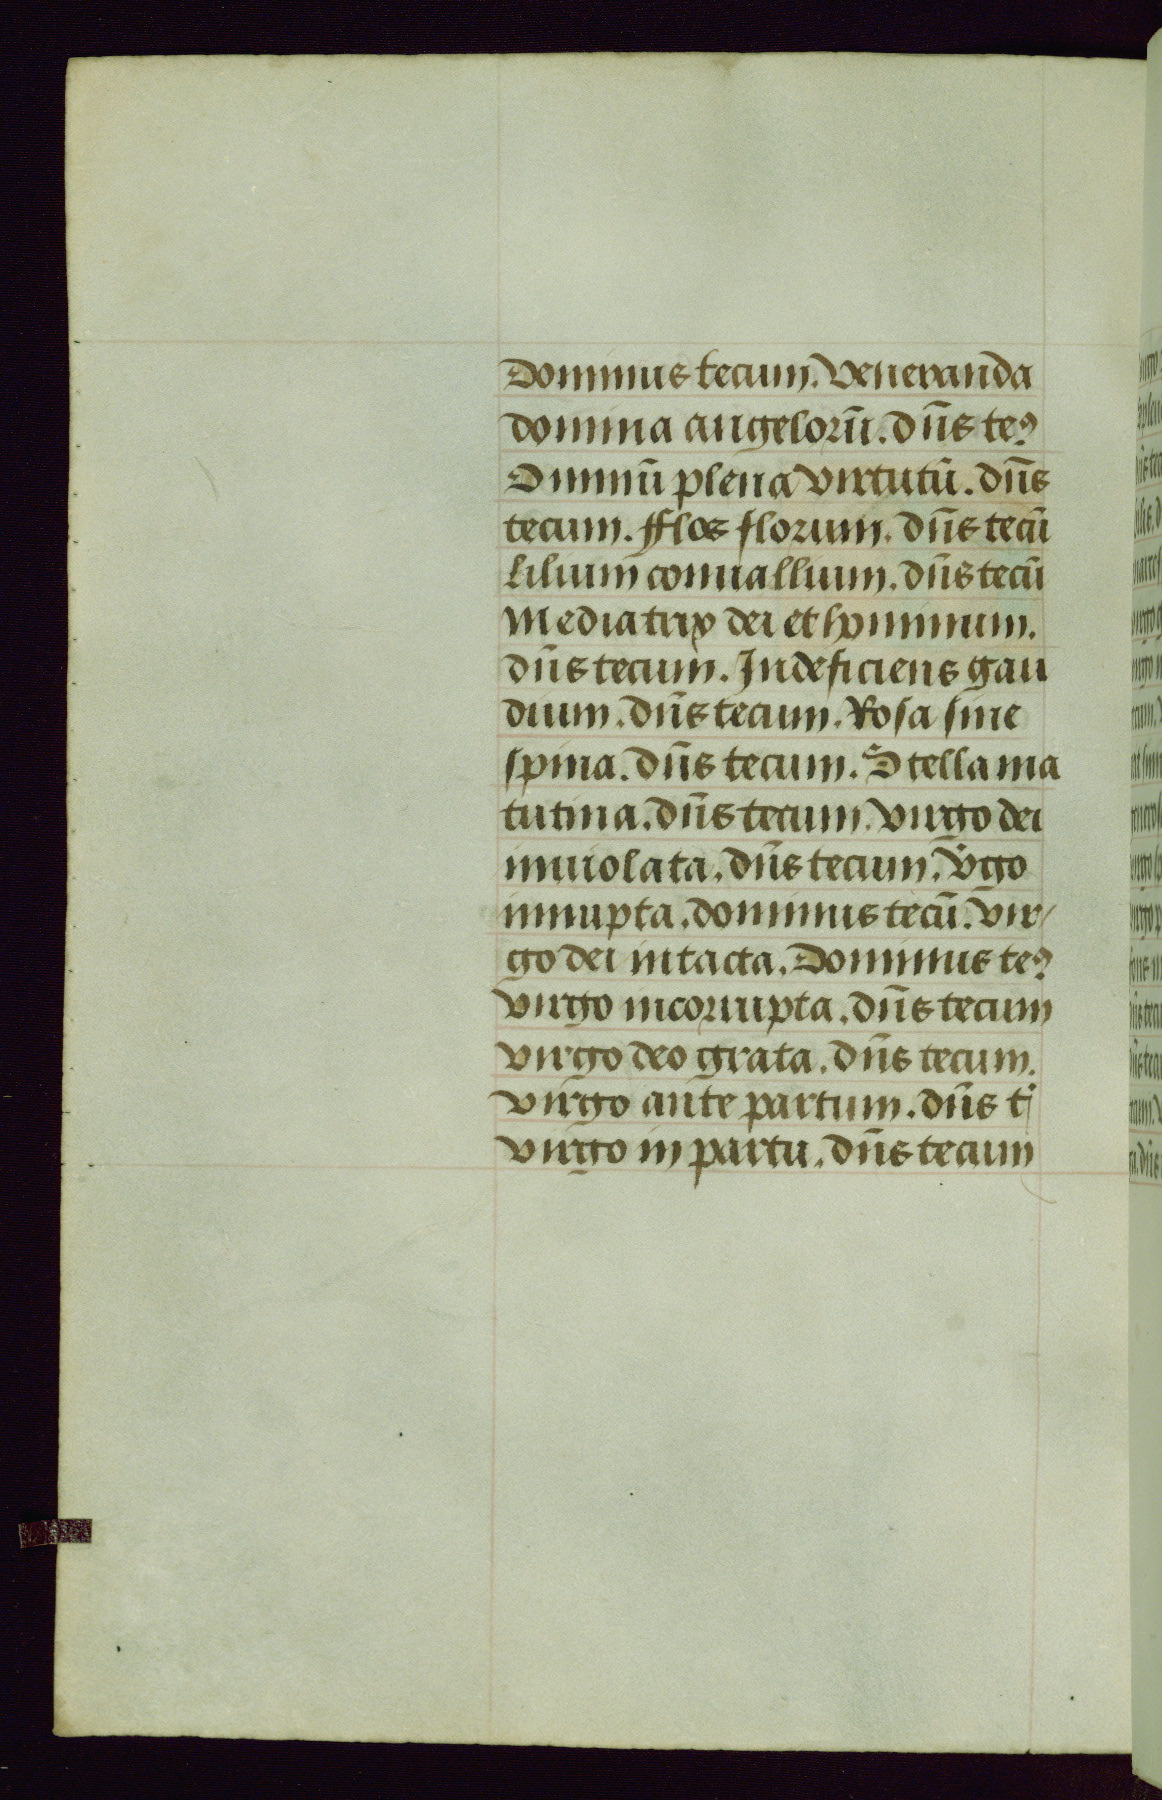 Dominus tecum. Veneranda
domina angelorū. dn̄s teꝯ
Omniū plena virtutū. dn̄s
tecum. fflos florum. dn̄s tecū
Lilium conuallium. dn̄s tecū
Mediatrix dei et hominum.
dn̄s tecum. Indeficiens gau
dium. dn̄s tecum. Rosa sine
spina. dn̄s tecum. Stella ma
tutina. dn̄s tecum. virgo dei
inuiolata. dn̄s tecum. v̇go
innupta. dominus tecū. vir/
go dei intacta. Dominus teꝯ
virgo incorrupta. dn̄s tecum
virgo deo grata. dn̄s tecum.
virgo ante partum. dn̄s t
virgo in partu. dn̄s tecum